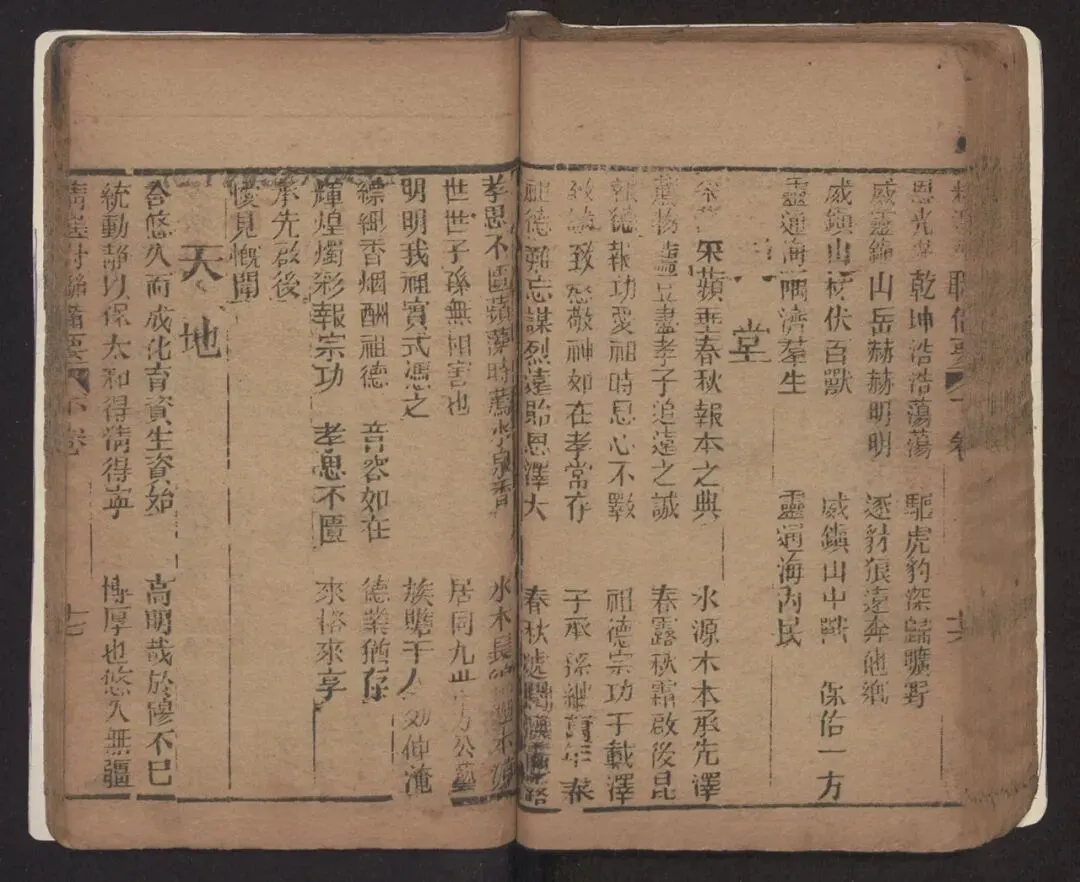 恩光 乾坤浩浩蕩蕩 驅虎豹深歸曠野
威靈鎮山岳赫赫明明 逐豺狼遠奔他鄉
威鎮山林伏百獸 威鎮山中 保佑一方
靈通海隅濟羣生 靈通海內民
堂
采蘋 春秋報本之典 水源木本承先澤
萬物 盡孝子追遠之誠 春露秋霜啟後昆
報德報功愛祖時思心不斁 祖德宗功千載澤
致慤致愨敬神如在孝常存 子承孫繼萬年春
祖德難忘謀烈遠貽恩澤大 春秋
孝思不匱蘋藻時薦水泉香 水木長 木
世世子孫無相害也 居同九世 公藝
明明我祖實式憑之 族聸千人 効仲淹
縹緲香烟酬祖德 音容如在 德業猶存
輝煌燭彩報宗功 孝思不匱 來格來享
承先啟後
愾見慨聞
天地
合悠久而成化育資生資始 高明哉於穆不已
統動靜以保太和得清得寧 博厚也悠久無疆
精選對聯備要 下卷 十七